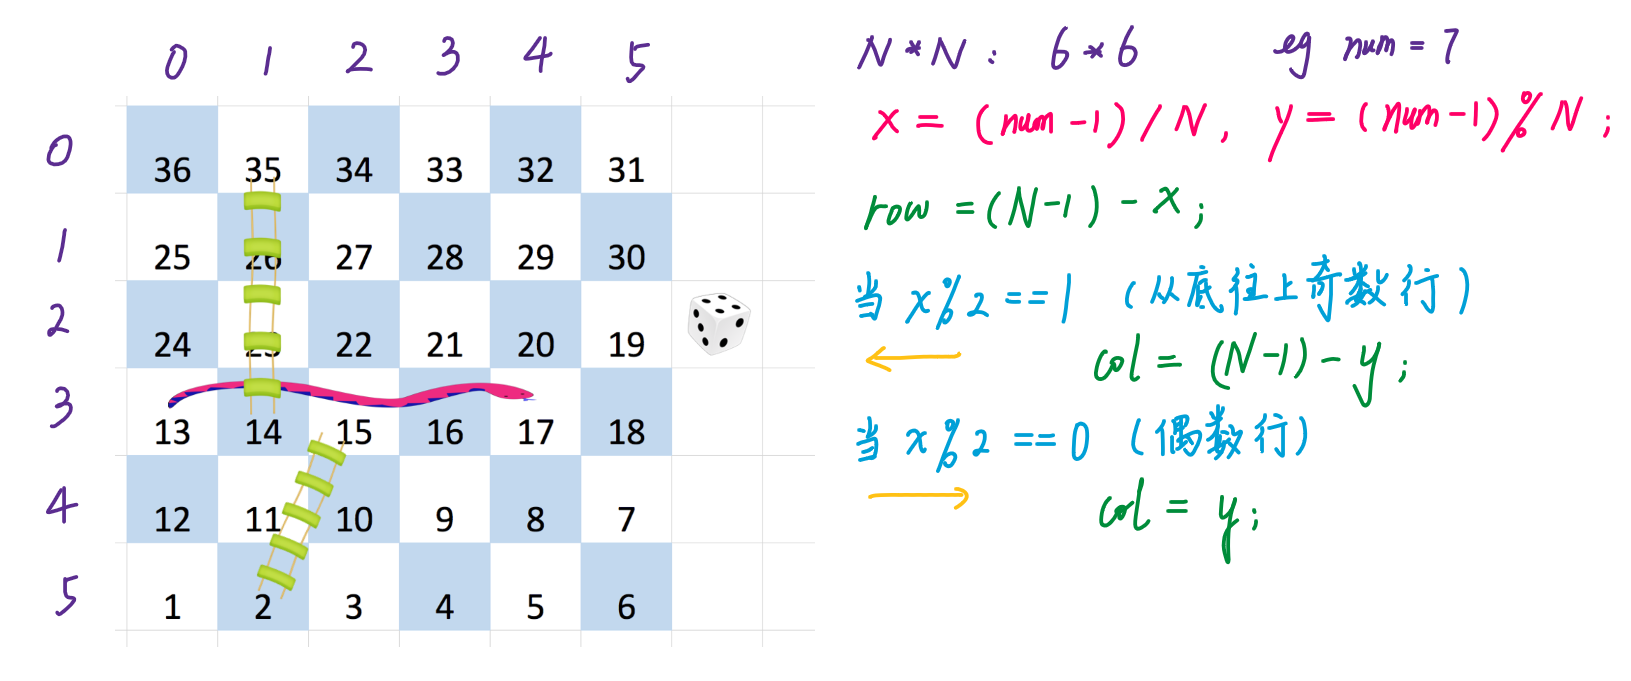 0 1 2 3 4 5
0 36 35 34 33 32 31
1 25 26 27 28 29 30
2 24 23 22 21 20 19
3 13 14 15 16 17 18
4 12 11 10 9 8 7
5 1 2 3 4 5 6
N*N: 6*6 eg num=7
x = (num-1)/N, y = (num-1)%N;
row = (N-1)-x;
当 x%2==1 (从底往上奇数行)
col = (N-1)-y;
当 x%2==0 (偶数行)
col = y;